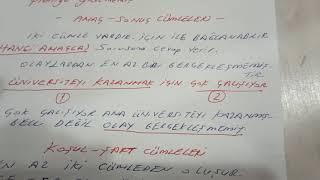 - AMAÇ - SONUÇ CÜMLELERİ -
İKİ CÜMLE VARDIR. İÇİN İLE BAĞLANABİLİR
HANGİ AMAÇLA) Sorusuna cevap verir.
OLAYLARDAN EN AZ BİRİ GERÇEKLEŞMEMİŞ-
TİR
ÜNİVERSİTEYİ KAZANMAK İÇİN ÇOK ÇALIŞIYOR
1 2
ÇOK ÇALIŞIYOR AMA ÜNİVERSİTEYİ KAZANMIŞ
BELLİ DEĞİL OLAY GERÇEKLEŞMEMİŞ
KOŞUL - ŞART CÜMLELERİ
EN AZ İKİ CÜMLEDEN OLUŞUR.